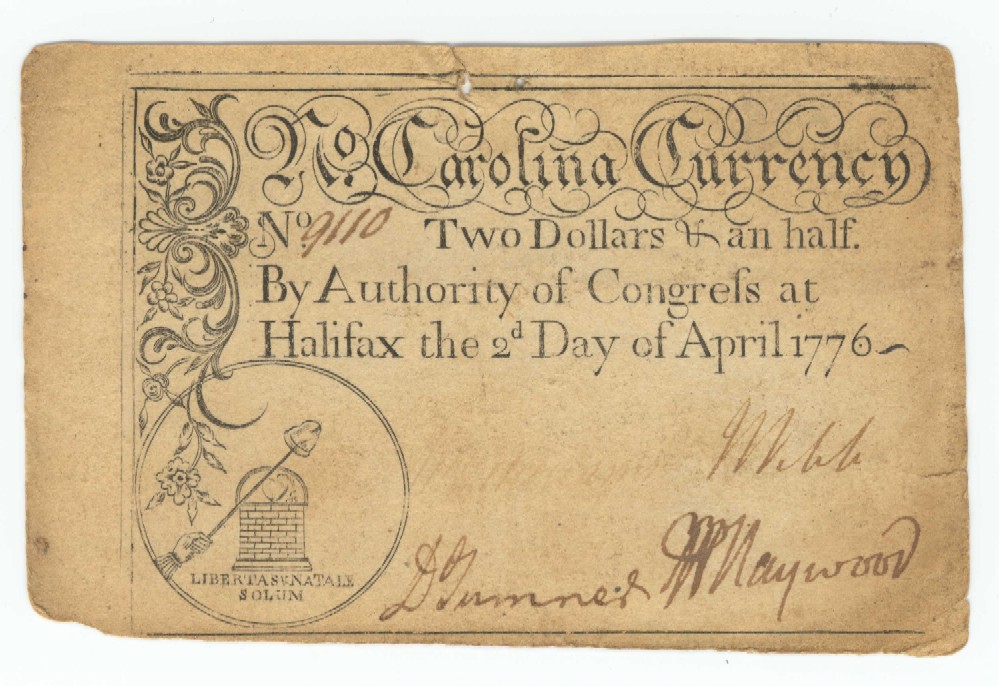 No. Carolina Currency
No. 9110 Two Dollars & an half.
By Authority of Congreſs at
Halifax the 2d Day of April 1776
Webb
D Sumner W Haywood
LIBERTAS & NATALE
SOLUM